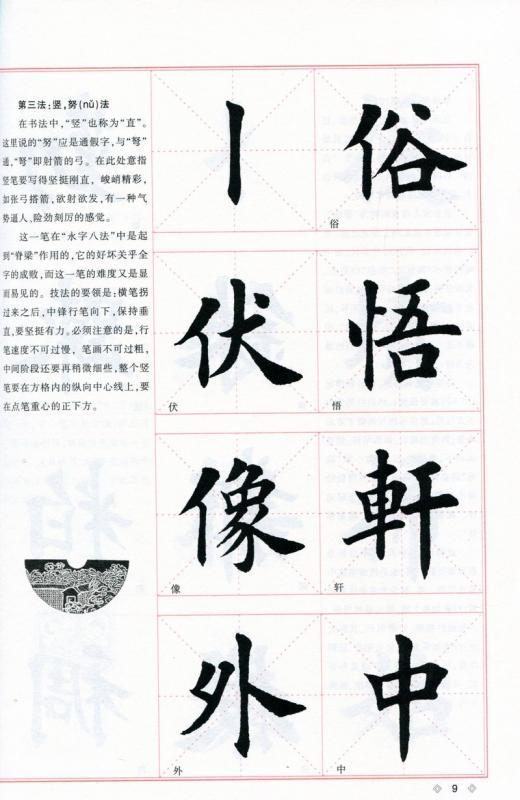 第三法:竖,努(nǔ)法
在书法中,“竖”也称为“直”。
这里说的“努”应是通假字,与“弩”
通,“弩”即射箭的弓。在此处意指
竖笔要写得坚挺刚直,峻峭精彩,
如张弓搭箭,欲射欲发,有一种气
势逼人、险劲刻厉的感觉。
这一笔在“永字八法”中是起
到“脊梁”作用的,它的好坏关乎全
字的成败,而这一笔的难度又是显
而易见的。技法的要领是:横笔拐
过来之后,中锋行笔向下,保持垂
直,要坚挺有力。必须注意的是,行
笔速度不可过慢,笔画不可过粗,
中间阶段还要再稍微细些,整个竖
笔要在方格内的纵向中心线上,要
在点笔重心的正下方。
丨
俗
俗
伏
悟
伏
悟
像
軒
像
轩
外
中
外
中
9